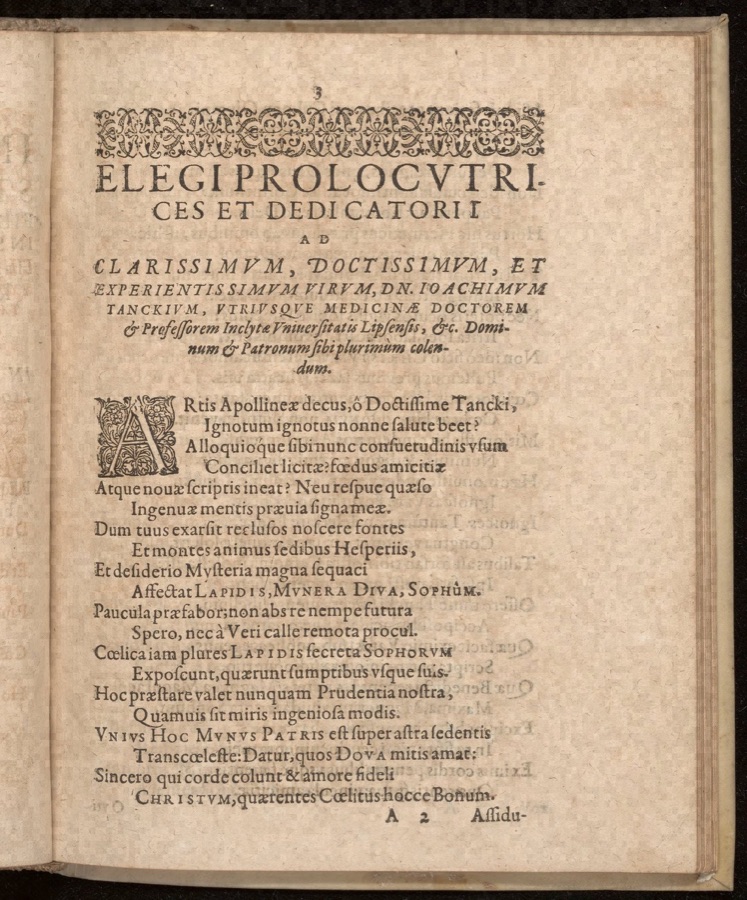 3
ELEGI PROLOCVTRI-
CES ET DEDICATORII
AD
CLARISSIMVM, DOCTISSIMVM, ET
EXPERIENTISSIMVM VIRVM, DN. IOACHIMVM
TANCKIVM, VTRIVSQVE MEDICINÆ DOCTOREM
& Professorem Inclytæ Vniuersitatis Lipsensis, &c. Domi-
num & Patronum sibi plurimùm colen-
dum.
ARtis Apollineæ decus, ô Doctissime Tancki,
Ignotum ignotus nonne salute beet?
Alloquioque sibi nunc consuetudinis vsum
Conciliet licitæ? fœdus amicitiæ
Atque nouæ scriptis ineat? Neu respue quæso
Ingenuæ mentis præuia signa meæ.
Dum tuus exarsit reclusos noscere fontes
Et montes animus sedibus Hesperiis,
Et desiderio Mysteria magna sequaci
Affectat LAPIDIS, MVNERA DIVA, SOPHÛM.
Paucula præfabor; non abs re nempe futura
Spero, nec à Veri calle remota procul.
Cœlica iam plures LAPIDIS secreta SOPHORVM
Exposcunt, quærunt sumptibus vsque suis.
Hoc præstare valet nunquam Prudentia nostra,
Quamuis sit miris ingeniosa modis.
VNIVS HOC MVNVS PATRIS est super astra sedentis
Transcœleste: Datur, quos DOVA mitis amat:
Sincero qui corde colunt & amore fideli
CHRISTVM, quærentes Cœlitus hocce Bonum.
A 2 Assidu-